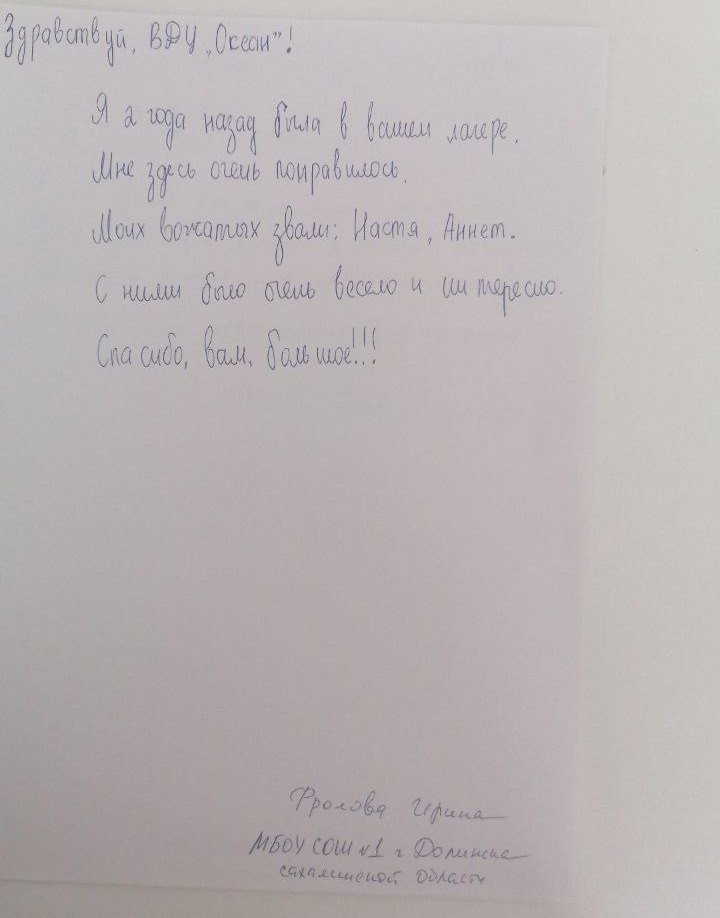 Здравствуй, ВДЦ „Океан"!
Я 2 года назад была в вашем лагере.
Мне здесь очень понравилось.
Моих вожатых звали: Настя, Аннет.
С ними было очень весело и интересно.
Спасибо, вам, большое!!!
Фролова Ирина
МБОУ СОШ №1 г Долинска
сахалинской области